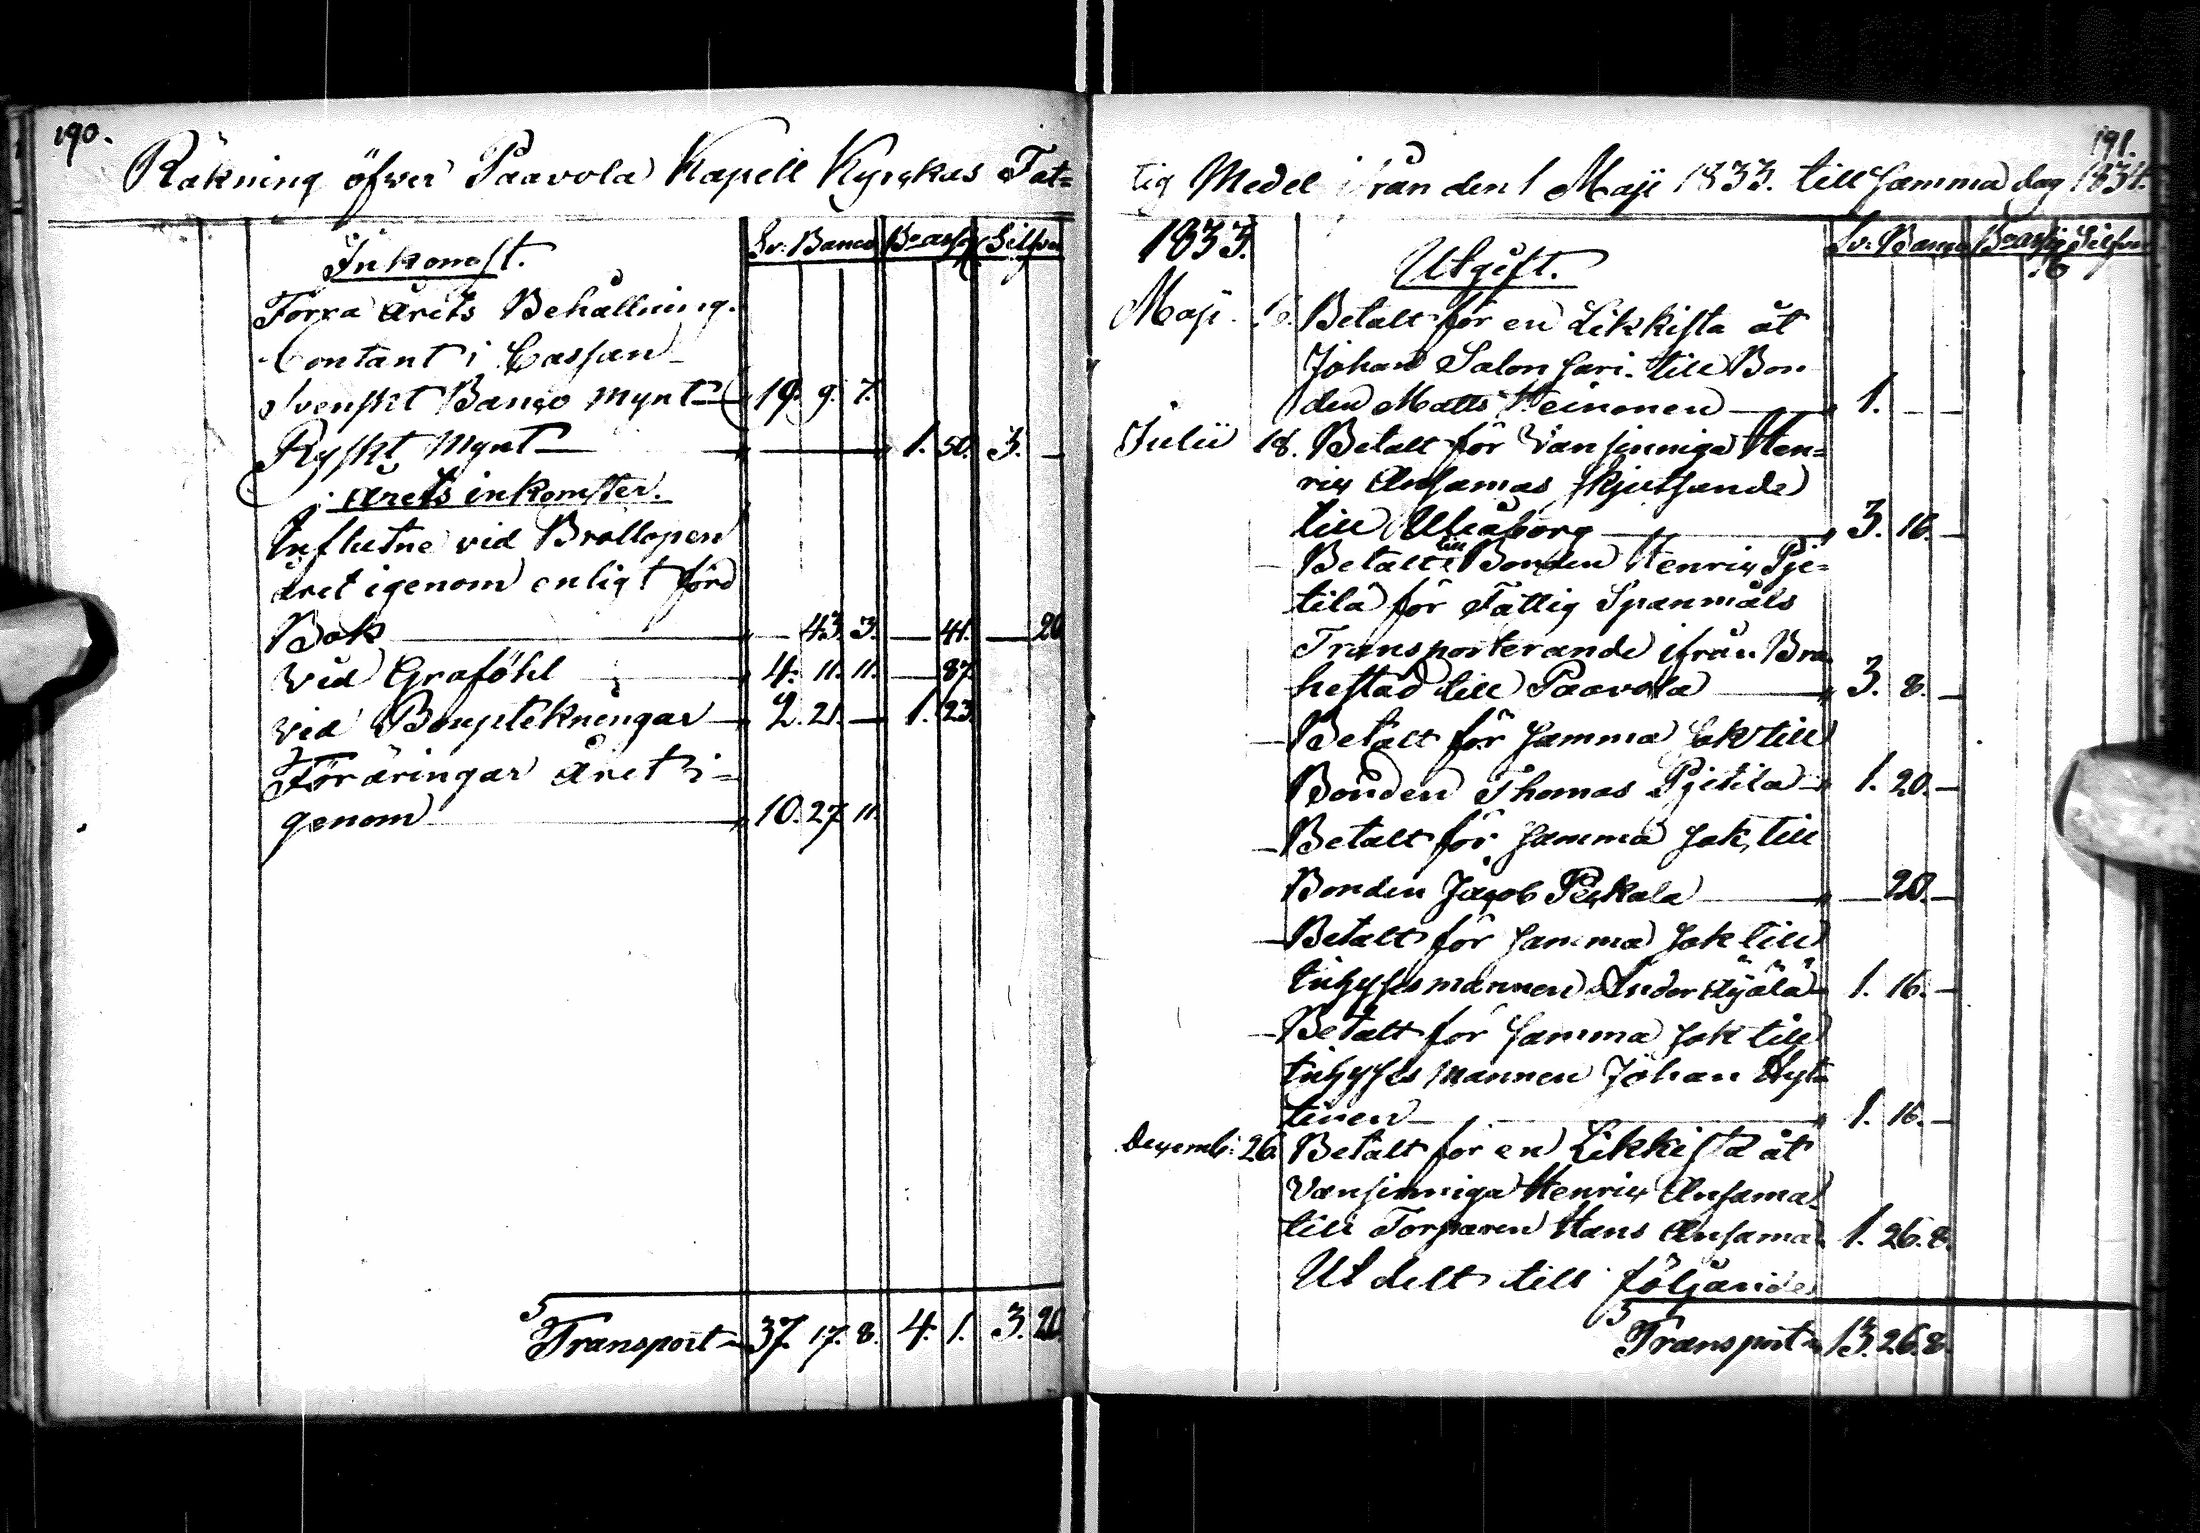 190.
Räkning öfver Paavola Kapell Kyrckas Fat=
Inkomst.
Sv: Banco Bo assig Silfver
Förra årets Behållning.
Contant i Cassan
Svenskt Banco mynt 19. 9. 7.
Ryskt Mynt — 1. 50. 3. —
årets inkomster.
Influtne vid Bröllopen
året igenom enligt förd
Bok — 43. 3. — 41. — 20
vid Graföhl 4. 11. 11. — 87.
vid Boupteknengar 2. 21. — 1. 23.
Föräringar året i=
genom 10. 27. 11.
Transport 37. 17. 8. 4. 1. 3. 20
191.
tig Medel ifrån den 1 Maji 1833. till samma dag 1834.
1833.
Utgift.
Sv: Banco Bo assig Silfver
Maji Betalt för en Likkista åt
Johan Salonsari till Bon
den Matts Heinonen 1. — —
Julii 18. Betalt för Vansinniga Hen=
ric Ansamas skjutsande
till Uleåborg 3. 16. —
— Betalt till Bonden Henric Pje=
tila för Fattig Spanmåls
Transporterande ifrån Bra
hestad till Paavola 3. 8. —
— Betalt för samma sak till
Bonden Thomas Pjetila 1. 20. —
— Betalt för samma sak till
Bonden Jacob Peckala — 20. —
— Betalt för samma sak till
inhysesmannen Ander Kyälä 1. 16. —
— Betalt för samma sak till
inhyses mannen Johan Hyt=
tinen 1. 16. —
Decemb: 26. Betalt för en Likkista åt
vansinniga Henric Ansama
till Torparen Hans Ansama 1. 26. 8.
Ut delt till följande
Transport 13. 26. 8.